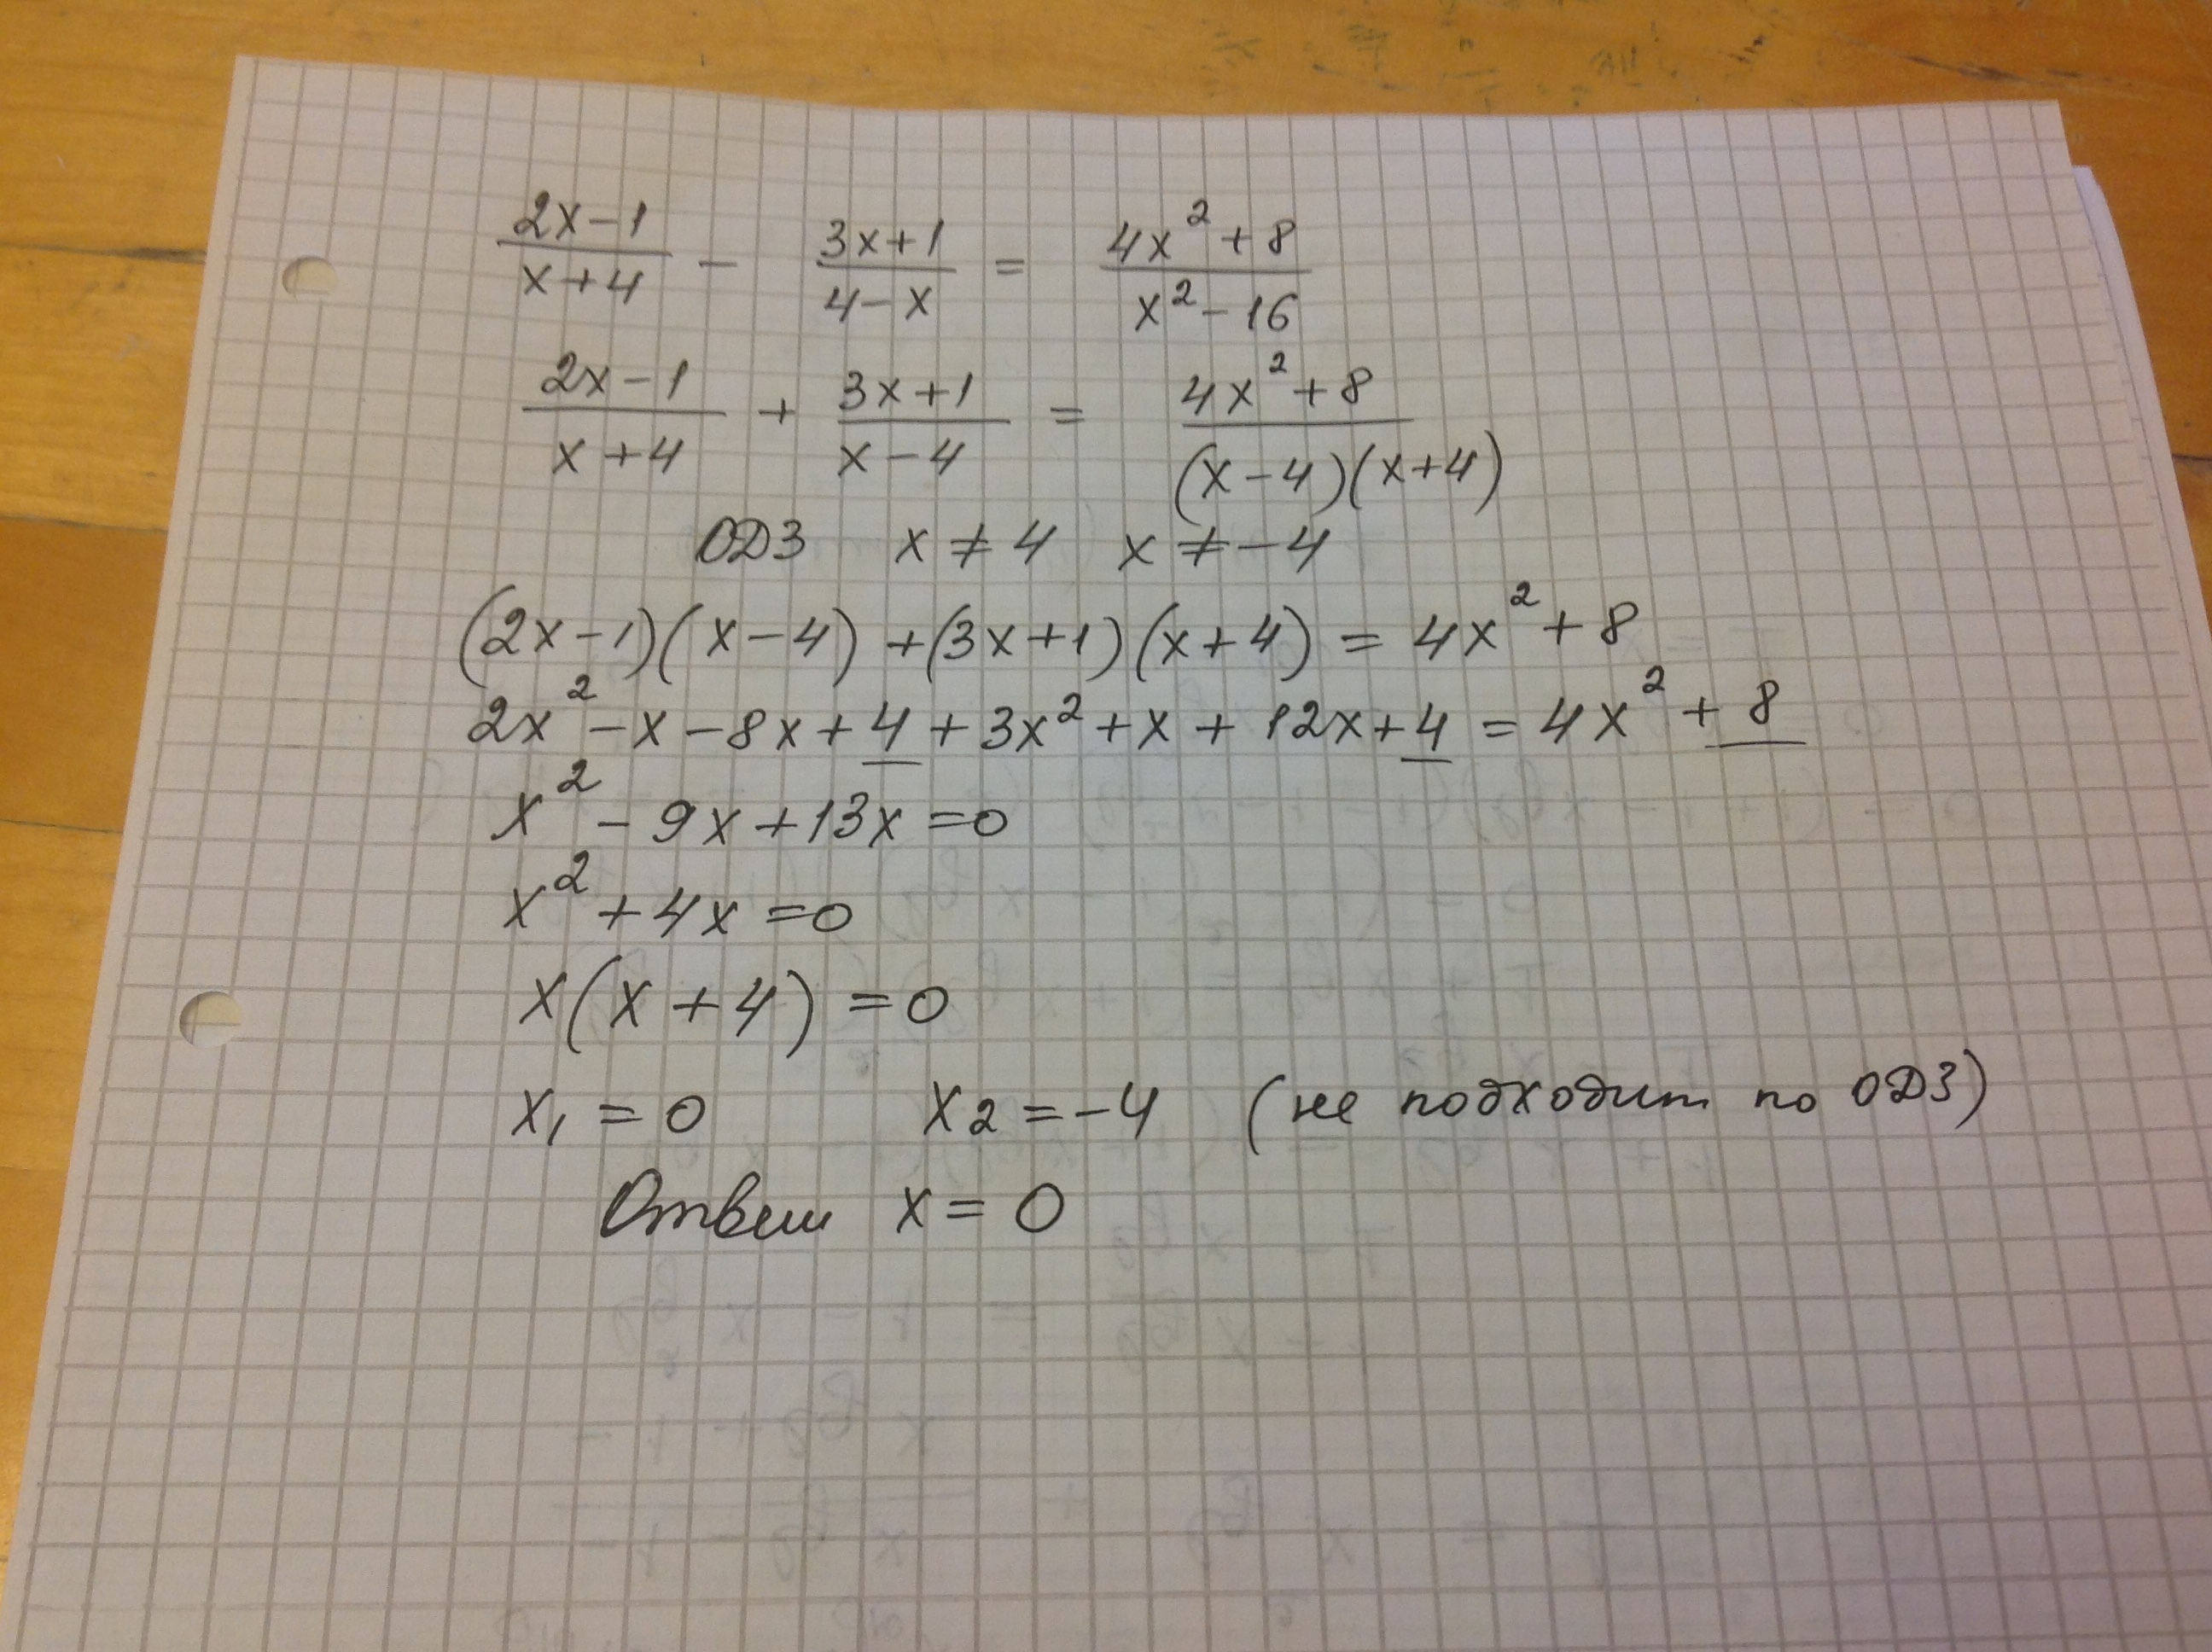 (2x-1)/(x+4) - (3x+1)/(4-x) = (4x²+8)/(x²-16)
(2x-1)/(x+4) + (3x+1)/(x-4) = (4x²+8)/((x-4)(x+4))
ОДЗ x ≠ 4 x ≠ -4
(2x-1)(x-4) + (3x+1)(x+4) = 4x² + 8
2x² - x - 8x + 4 + 3x² + x + 12x + 4 = 4x² + 8
x² - 9x + 13x = 0
x² + 4x = 0
x(x+4) = 0
x₁ = 0 x₂ = -4 (не подходит по ОДЗ)
Ответ x = 0